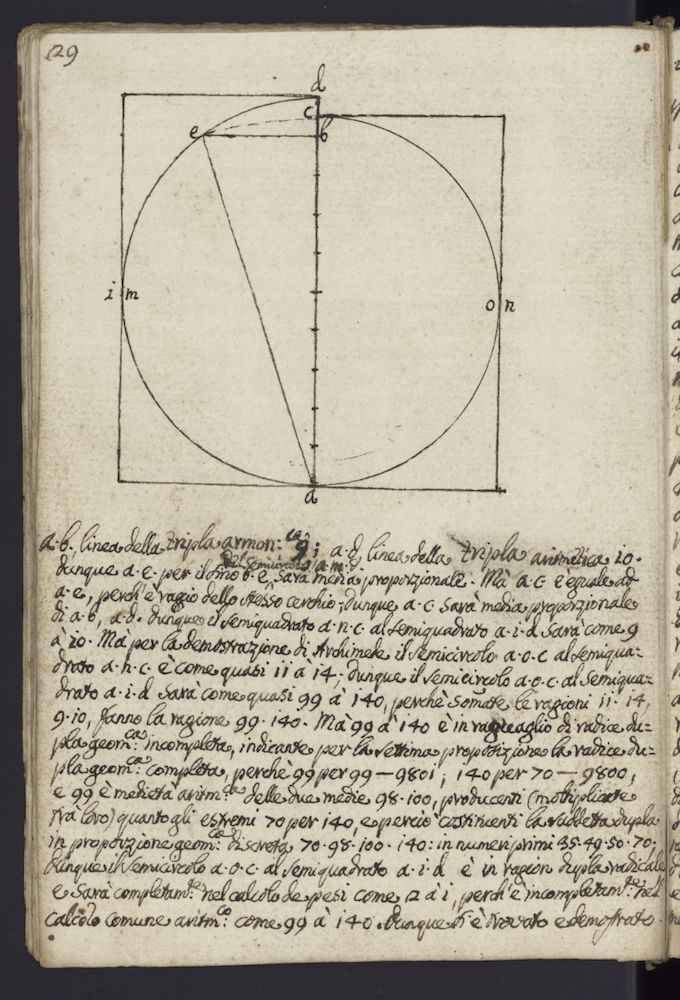 129
d
c
e
b
i m
o n
a
a. b. linea della tripla armon:ca 9; a. d. linea della tripla aritmetica 10.
del semicircolo a. m. d.
dunque a. e. per il sino b. e. sarà media proporzionale. Mà a. c. è eguale ad
a. e, perch'è ragio dello stesso cerchio; dunque a. c. sarà media proporzionale
di a. b, a. d. dunque il semiquadrato a. n. c. al semiquadrato a. i. d. sarà come 9
à 10. Mà per la demostrazione di Archimede il semicircolo a. o. c. al semiqua-
drato a. n. c. è come quasi 11 à 14; dunque il semicircolo a. o. c. al semiqua-
drato a. i. d. sarà come quasi 99 à 140, perchè somate le ragioni 11. 14,
9. 10, fanno la ragione 99. 140. Mà 99 à 140 è in di radice du=
pla geom:ca incompleta, indicante per la settima proposizione la radice du=
pla geom:ca completa, perchè 99 per 99 — 9801; 140 per 70 — 9800,
e 99 è medietà aritm:ca delle due medie 98. 100, producenti (moltiplicate
trà loro) quanto gli estremi 70 per 140, e perciò costituenti la suddetta dupla
in proporzione geom:ca discreta 70. 98. 100. 140: in numeri primi 35. 49. 50. 70;
dunque il semicircolo a. o. c. al semiquadrato a. i. d. è in ragion dupla radicale
e sarà completam:te nel calcolo de pesi come 12 à 1, perch'è incompletam:te nel
calcolo comune aritm:co come 99 à 140. Dunque si è trovato e demostrato